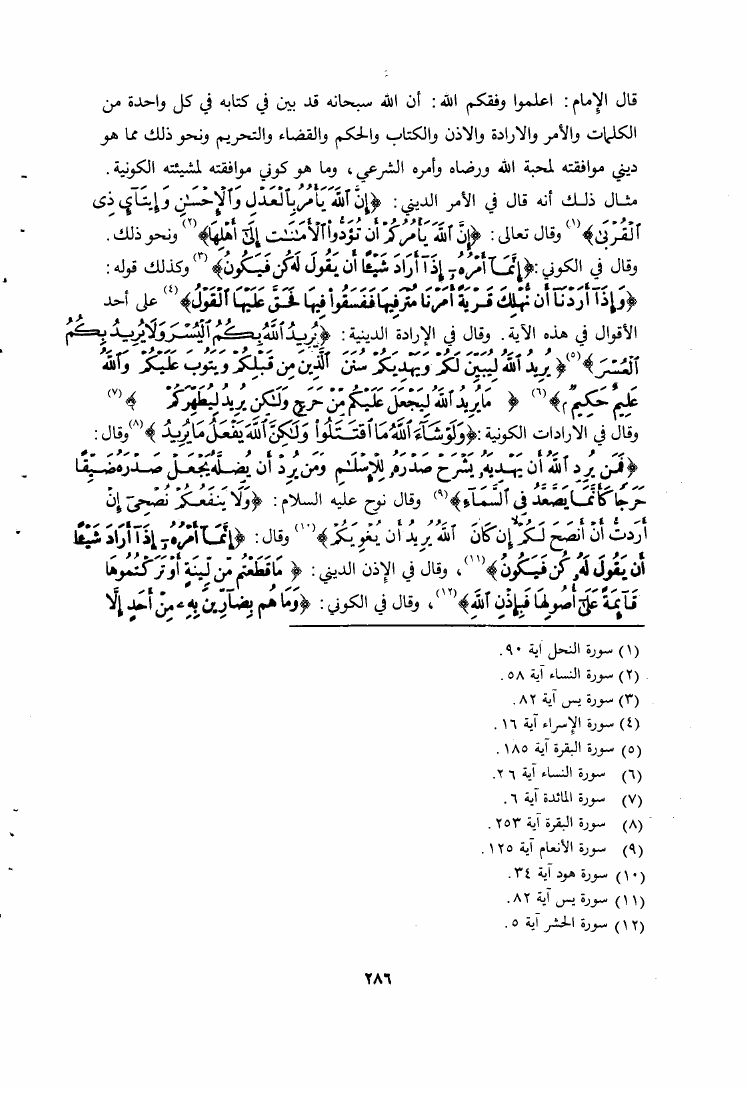 قال الإمام : اعلموا وفقكم الله : أن الله سبحانه قد بين في كتابه في كل واحدة من
الكلمات والأمر والارادة والاذن والكتاب والحكم والقضاء والتحريم ونحو ذلك مما هو
ديني موافقته لمحبة الله ورضاه وأمره الشرعي ، وما هو كوني موافقته لمشيئته الكونية .
مثال ذلك أنه قال في الأمر الديني : ﴿إِنَّ ٱللَّهَ يَأْمُرُ بِٱلْعَدْلِ وَٱلْإِحْسَٰنِ وَإِيتَآيِٕ ذِى
ٱلْقُرْبَىٰ﴾(١) وقال تعالى : ﴿إِنَّ ٱللَّهَ يَأْمُرُكُمْ أَن تُؤَدُّوا۟ ٱلْأَمَٰنَٰتِ إِلَىٰٓ أَهْلِهَا﴾(٢) ونحو ذلك .
وقال في الكوني :﴿إِنَّمَآ أَمْرُهُۥٓ إِذَآ أَرَادَ شَيْـًٔا أَن يَقُولَ لَهُۥ كُن فَيَكُونُ﴾(٣) وكذلك قوله :
﴿وَإِذَآ أَرَدْنَآ أَن نُّهْلِكَ قَرْيَةً أَمَرْنَا مُتْرَفِيهَا فَفَسَقُوا۟ فِيهَا فَحَقَّ عَلَيْهَا ٱلْقَوْلُ﴾(٤) على أحد
الأقوال في هذه الآية . وقال في الإرادة الدينية : ﴿يُرِيدُ ٱللَّهُ بِكُمُ ٱلْيُسْرَ وَلَا يُرِيدُ بِكُمُ
ٱلْعُسْرَ﴾(٥)﴿ يُرِيدُ ٱللَّهُ لِيُبَيِّنَ لَكُمْ وَيَهْدِيَكُمْ سُنَنَ ٱلَّذِينَ مِن قَبْلِكُمْ وَيَتُوبَ عَلَيْكُمْ وَٱللَّهُ
عَلِيمٌ حَكِيمٌ﴾(٦) ﴿ مَا يُرِيدُ ٱللَّهُ لِيَجْعَلَ عَلَيْكُم مِّنْ حَرَجٍ وَلَٰكِن يُرِيدُ لِيُطَهِّرَكُمْ ﴾(٧)
وقال في الارادات الكونية :﴿وَلَوْ شَآءَ ٱللَّهُ مَا ٱقْتَتَلُوا۟ وَلَٰكِنَّ ٱللَّهَ يَفْعَلُ مَا يُرِيدُ ﴾(٨)وقال :
﴿فَمَن يُرِدِ ٱللَّهُ أَن يَهْدِيَهُۥ يَشْرَحْ صَدْرَهُۥ لِلْإِسْلَٰمِ وَمَن يُرِدْ أَن يُضِلَّهُۥ يَجْعَلْ صَدْرَهُۥ ضَيِّقًا
حَرَجًا كَأَنَّمَا يَصَّعَّدُ فِى ٱلسَّمَآءِ﴾(٩) وقال نوح عليه السلام : ﴿وَلَا يَنفَعُكُمْ نُصْحِىٓ إِنْ
أَرَدتُّ أَنْ أَنصَحَ لَكُمْ إِن كَانَ ٱللَّهُ يُرِيدُ أَن يُغْوِيَكُمْ﴾(١٠) وقال : ﴿إِنَّمَآ أَمْرُهُۥٓ إِذَآ أَرَادَ شَيْـًٔا
أَن يَقُولَ لَهُۥ كُن فَيَكُونُ﴾(١١) ، وقال في الإذن الديني : ﴿ مَا قَطَعْتُم مِّن لِّينَةٍ أَوْ تَرَكْتُمُوهَا
قَآئِمَةً عَلَىٰٓ أُصُولِهَا فَبِإِذْنِ ٱللَّهِ﴾(١٢) ، وقال في الكوني : ﴿وَمَا هُم بِضَآرِّينَ بِهِۦ مِنْ أَحَدٍ إِلَّا
(١) سورة النحل آية ٩٠ .
(٢) سورة النساء آية ٥٨ .
(٣) سورة يس آية ٨٢ .
(٤) سورة الإسراء آية ١٦ .
(٥) سورة البقرة آية ١٨٥ .
(٦) سورة النساء آية ٢٦ .
(٧) سورة المائدة آية ٦ .
(٨) سورة البقرة آية ٢٥٣ .
(٩) سورة الأنعام آية ١٢٥ .
(١٠) سورة هود آية ٣٤ .
(١١) سورة يس آية ٨٢ .
(١٢) سورة الحشر آية ٥ .
٢٨٦